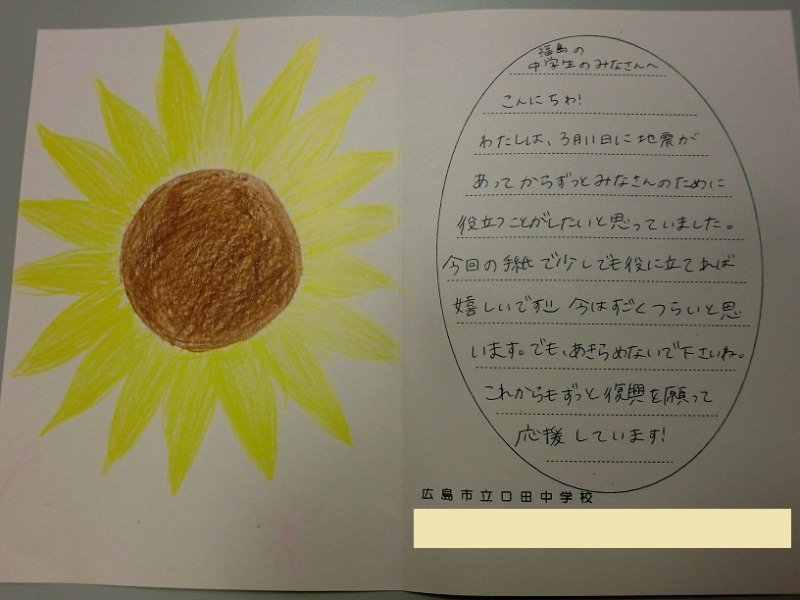 福島の
中学生のみなさんへ
こんにちわ!
わたしは、3月11日に地震が
あってからずっとみなさんのために
役立つことがしたいと思っていました。
今回の手紙で少しでも役に立てれば
嬉しいです!! 今はすごくつらいと思
います。でも、あきらめないで下さいね。
これからもずっと復興を願って
応援しています!
広島市立口田中学校